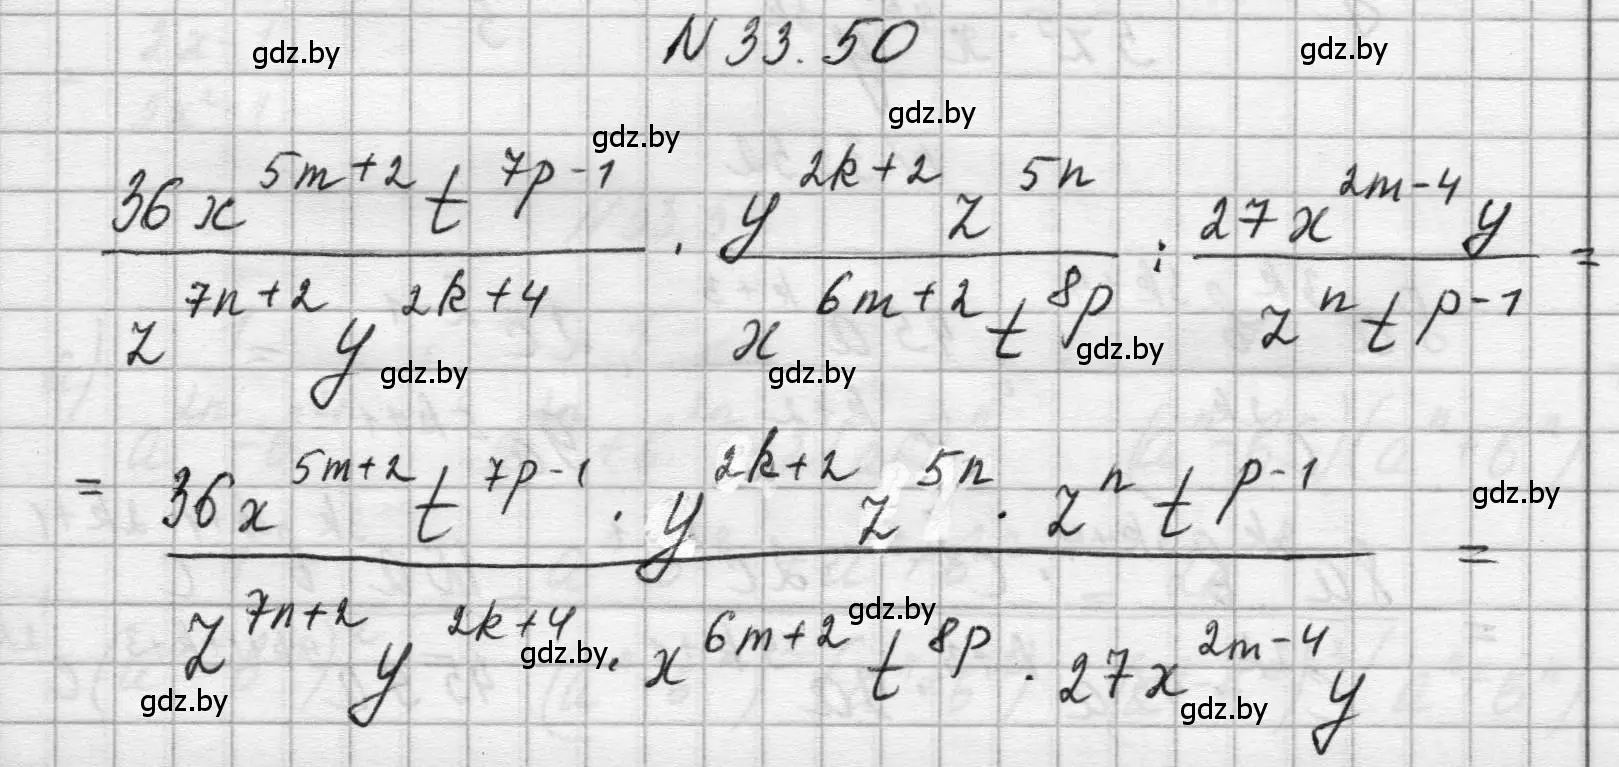 N 33.50
gdz.by
gdz.by
gdz.by
gdz.by
36x^{5m+2} t^{7p-1} / z^{7n+2} y^{2k+4} · y^{2k+2} z^{5n} / x^{6m+2} t^{8p} : 27x^{2m-4} y / z^n t^{p-1} =
gdz.by
gdz.by
gdz.by
= 36x^{5m+2} t^{7p-1} · y^{2k+2} z^{5n} · z^n t^{p-1} / z^{7n+2} y^{2k+4} · x^{6m+2} t^{8p} · 27x^{2m-4} y =
gdz.by
gdz.by
gdz.by
gdz.by
gdz.by